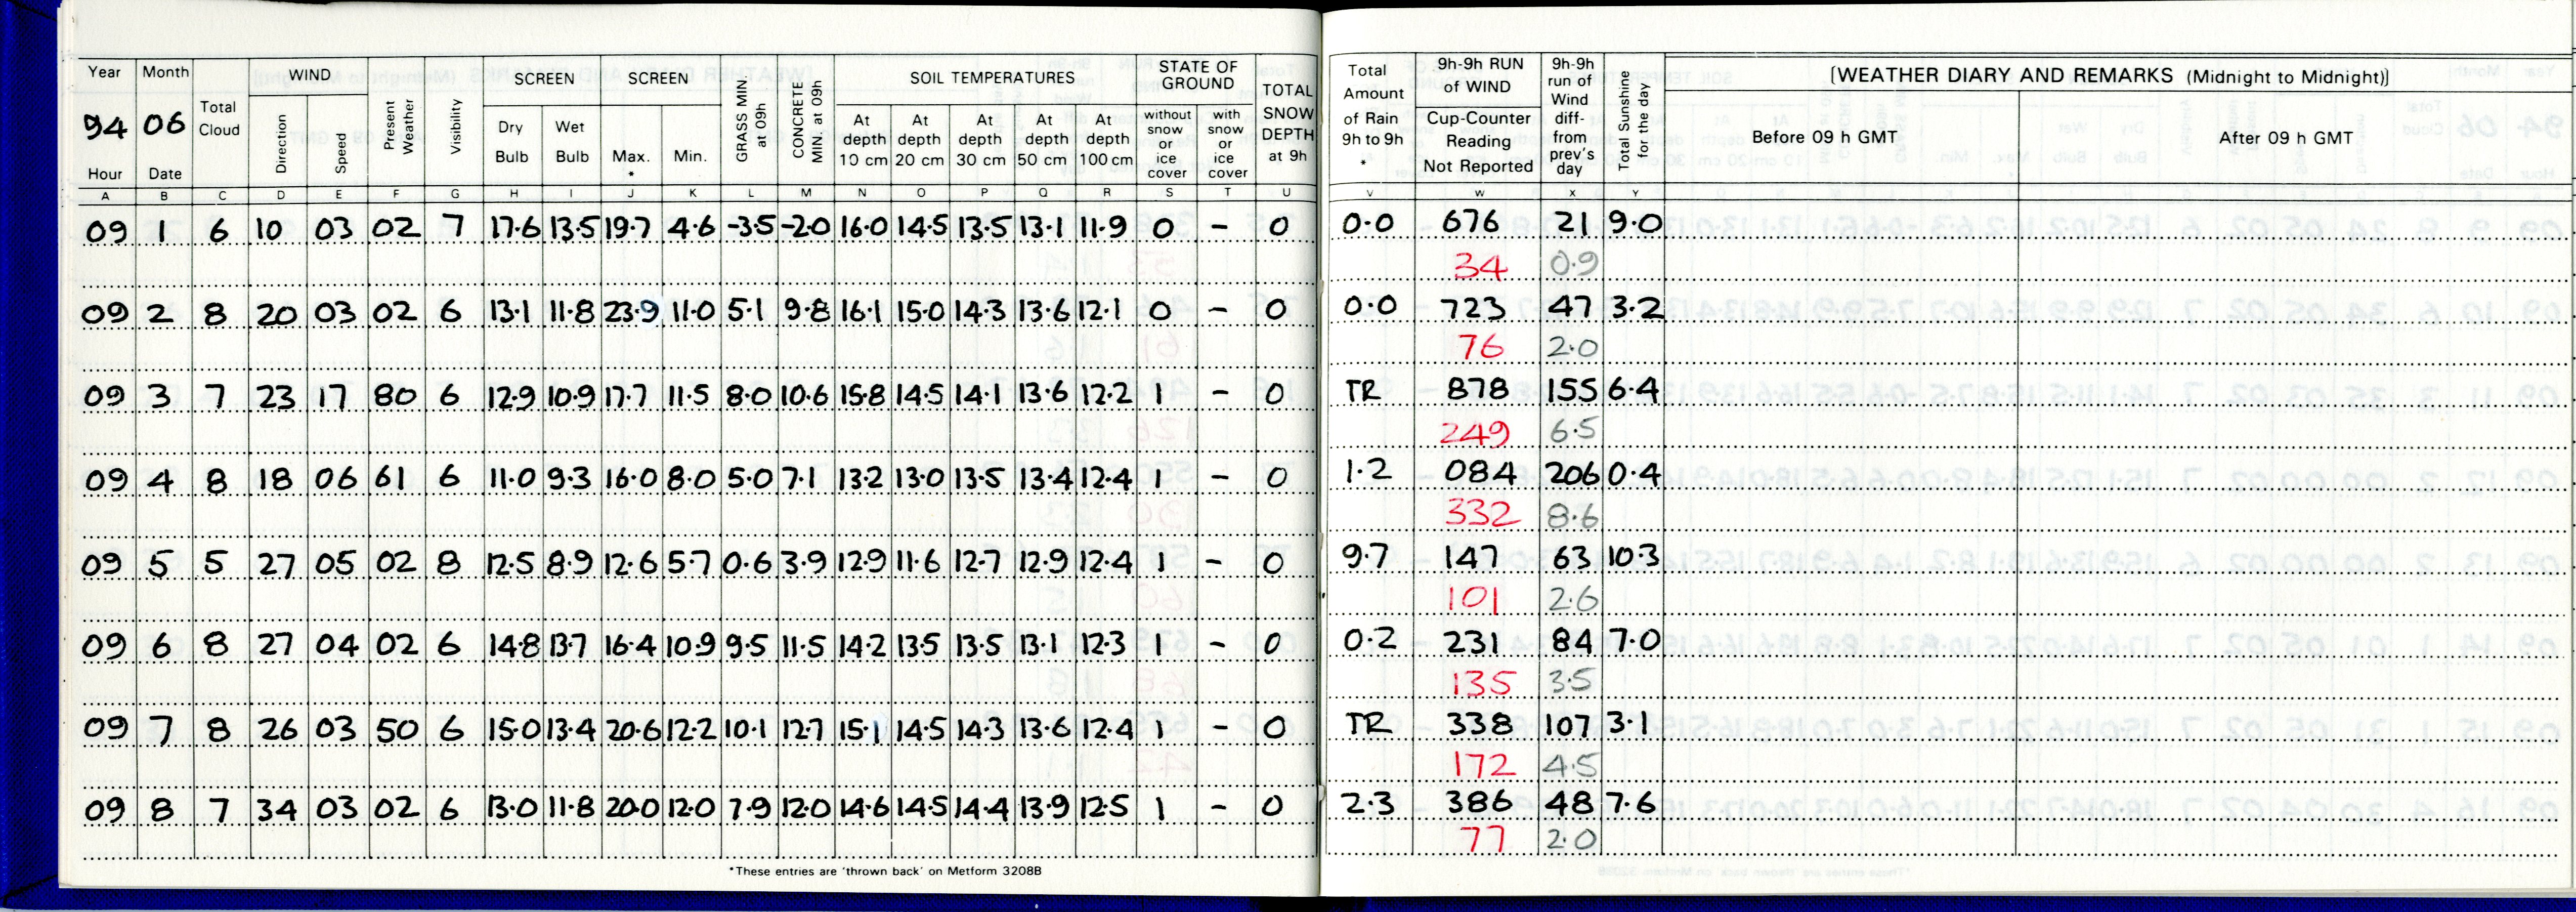 Year Month WIND SCREEN SCREEN SOIL TEMPERATURES STATE OF GROUND
94 06 Total Cloud Direction Speed Present Weather Visibility Dry Bulb Wet Bulb Max. * Min. GRASS MIN at 09h CONCRETE MIN. at 09h At depth 10 cm At depth 20 cm At depth 30 cm At depth 50 cm At depth 100 cm without snow or ice cover with snow or ice cover TOTAL SNOW DEPTH at 9h
Hour Date
A B C D E F G H I J K L M N O P Q R S T U
09 1 6 10 03 02 7 17.6 13.5 19.7 4.6 -3.5 -2.0 16.0 14.5 13.5 13.1 11.9 0 - 0
09 2 8 20 03 02 6 13.1 11.8 23.9 11.0 5.1 9.8 16.1 15.0 14.3 13.6 12.1 0 - 0
09 3 7 23 17 80 6 12.9 10.9 17.7 11.5 8.0 10.6 15.8 14.5 14.1 13.6 12.2 1 - 0
09 4 8 18 06 61 6 11.0 9.3 16.0 8.0 5.0 7.1 13.2 13.0 13.5 13.4 12.4 1 - 0
09 5 5 27 05 02 8 12.5 8.9 12.6 5.7 0.6 3.9 12.9 11.6 12.7 12.9 12.4 1 - 0
09 6 8 27 04 02 6 14.8 13.7 16.4 10.9 9.5 11.5 14.2 13.5 13.5 13.1 12.3 1 - 0
09 7 8 26 03 50 6 15.0 13.4 20.6 12.2 10.1 12.7 15.1 14.5 14.3 13.6 12.4 1 - 0
09 8 7 34 03 02 6 13.0 11.8 20.0 12.0 7.9 12.0 14.6 14.5 14.4 13.9 12.5 1 - 0
*These entries are 'thrown back' on Metform 3208B
Total Amount of Rain 9h to 9h * 9h-9h RUN of WIND Cup-Counter Reading Not Reported 9h-9h run of Wind diff- from prev's day Total Sunshine for the day [WEATHER DIARY AND REMARKS (Midnight to Midnight)]
Before 09 h GMT After 09 h GMT
V W X Y
0.0 676 21 9.0
34 0.9
0.0 723 47 3.2
76 2.0
TR 878 155 6.4
249 6.5
1.2 084 206 0.4
332 8.6
9.7 147 63 10.3
101 2.6
0.2 231 84 7.0
135 3.5
TR 338 107 3.1
172 4.5
2.3 386 48 7.6
77 2.0